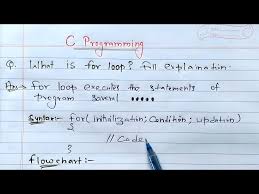 C Programming
Q. What is for loop? full explaination.
Ans → for loop executes the statements of
program several .....
Syntax:- for( initialization; Condition; updation)
{
// Code
}
flowchart:-